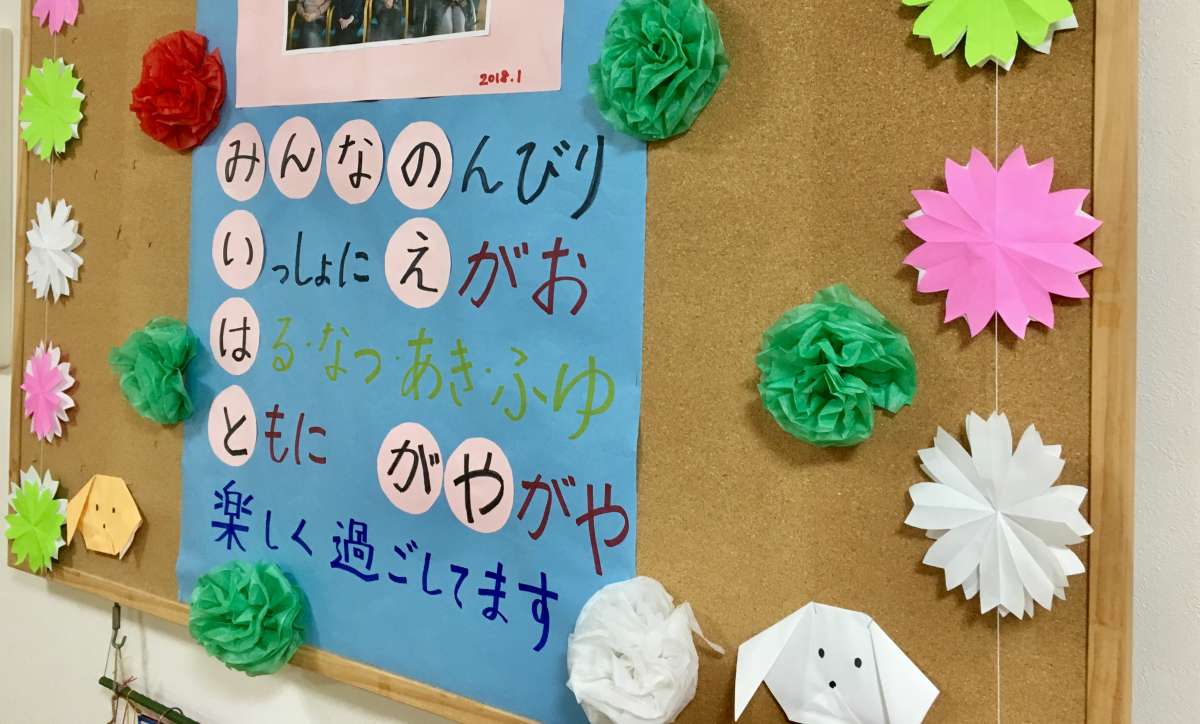 2018.1
みんなのんびり
いっしょにえがお
はる・なつ・あき・ふゆ
ともに がやがや
楽しく過ごしてます